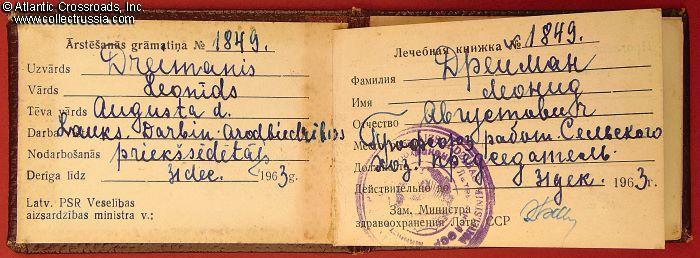 © Atlantic Crossroads, Inc.
www.collectrussia.com
Ārstēšanās grāmatiņa № 1849.
Uzvārds Dreimanis
Vārds Leonīds
Tēva vārds Augusta d.
Darba Lauks. Darbin. Arodbiedrības
Nodarbošanās priekšsēdētājs
Derīga līdz 31 dec. 1963 g.
Latv. PSR Veselības
aizsardzības ministra v.:
Лечебная книжка № 1849.
Фамилия Дрейман
Имя Леонид
Отчество Августович
Профсоюз работ. Сельского
Хоз. Председатель.
Действительно до 31 дек. 1963 г.
Зам. Министра
здравоохранения Латв. ССР